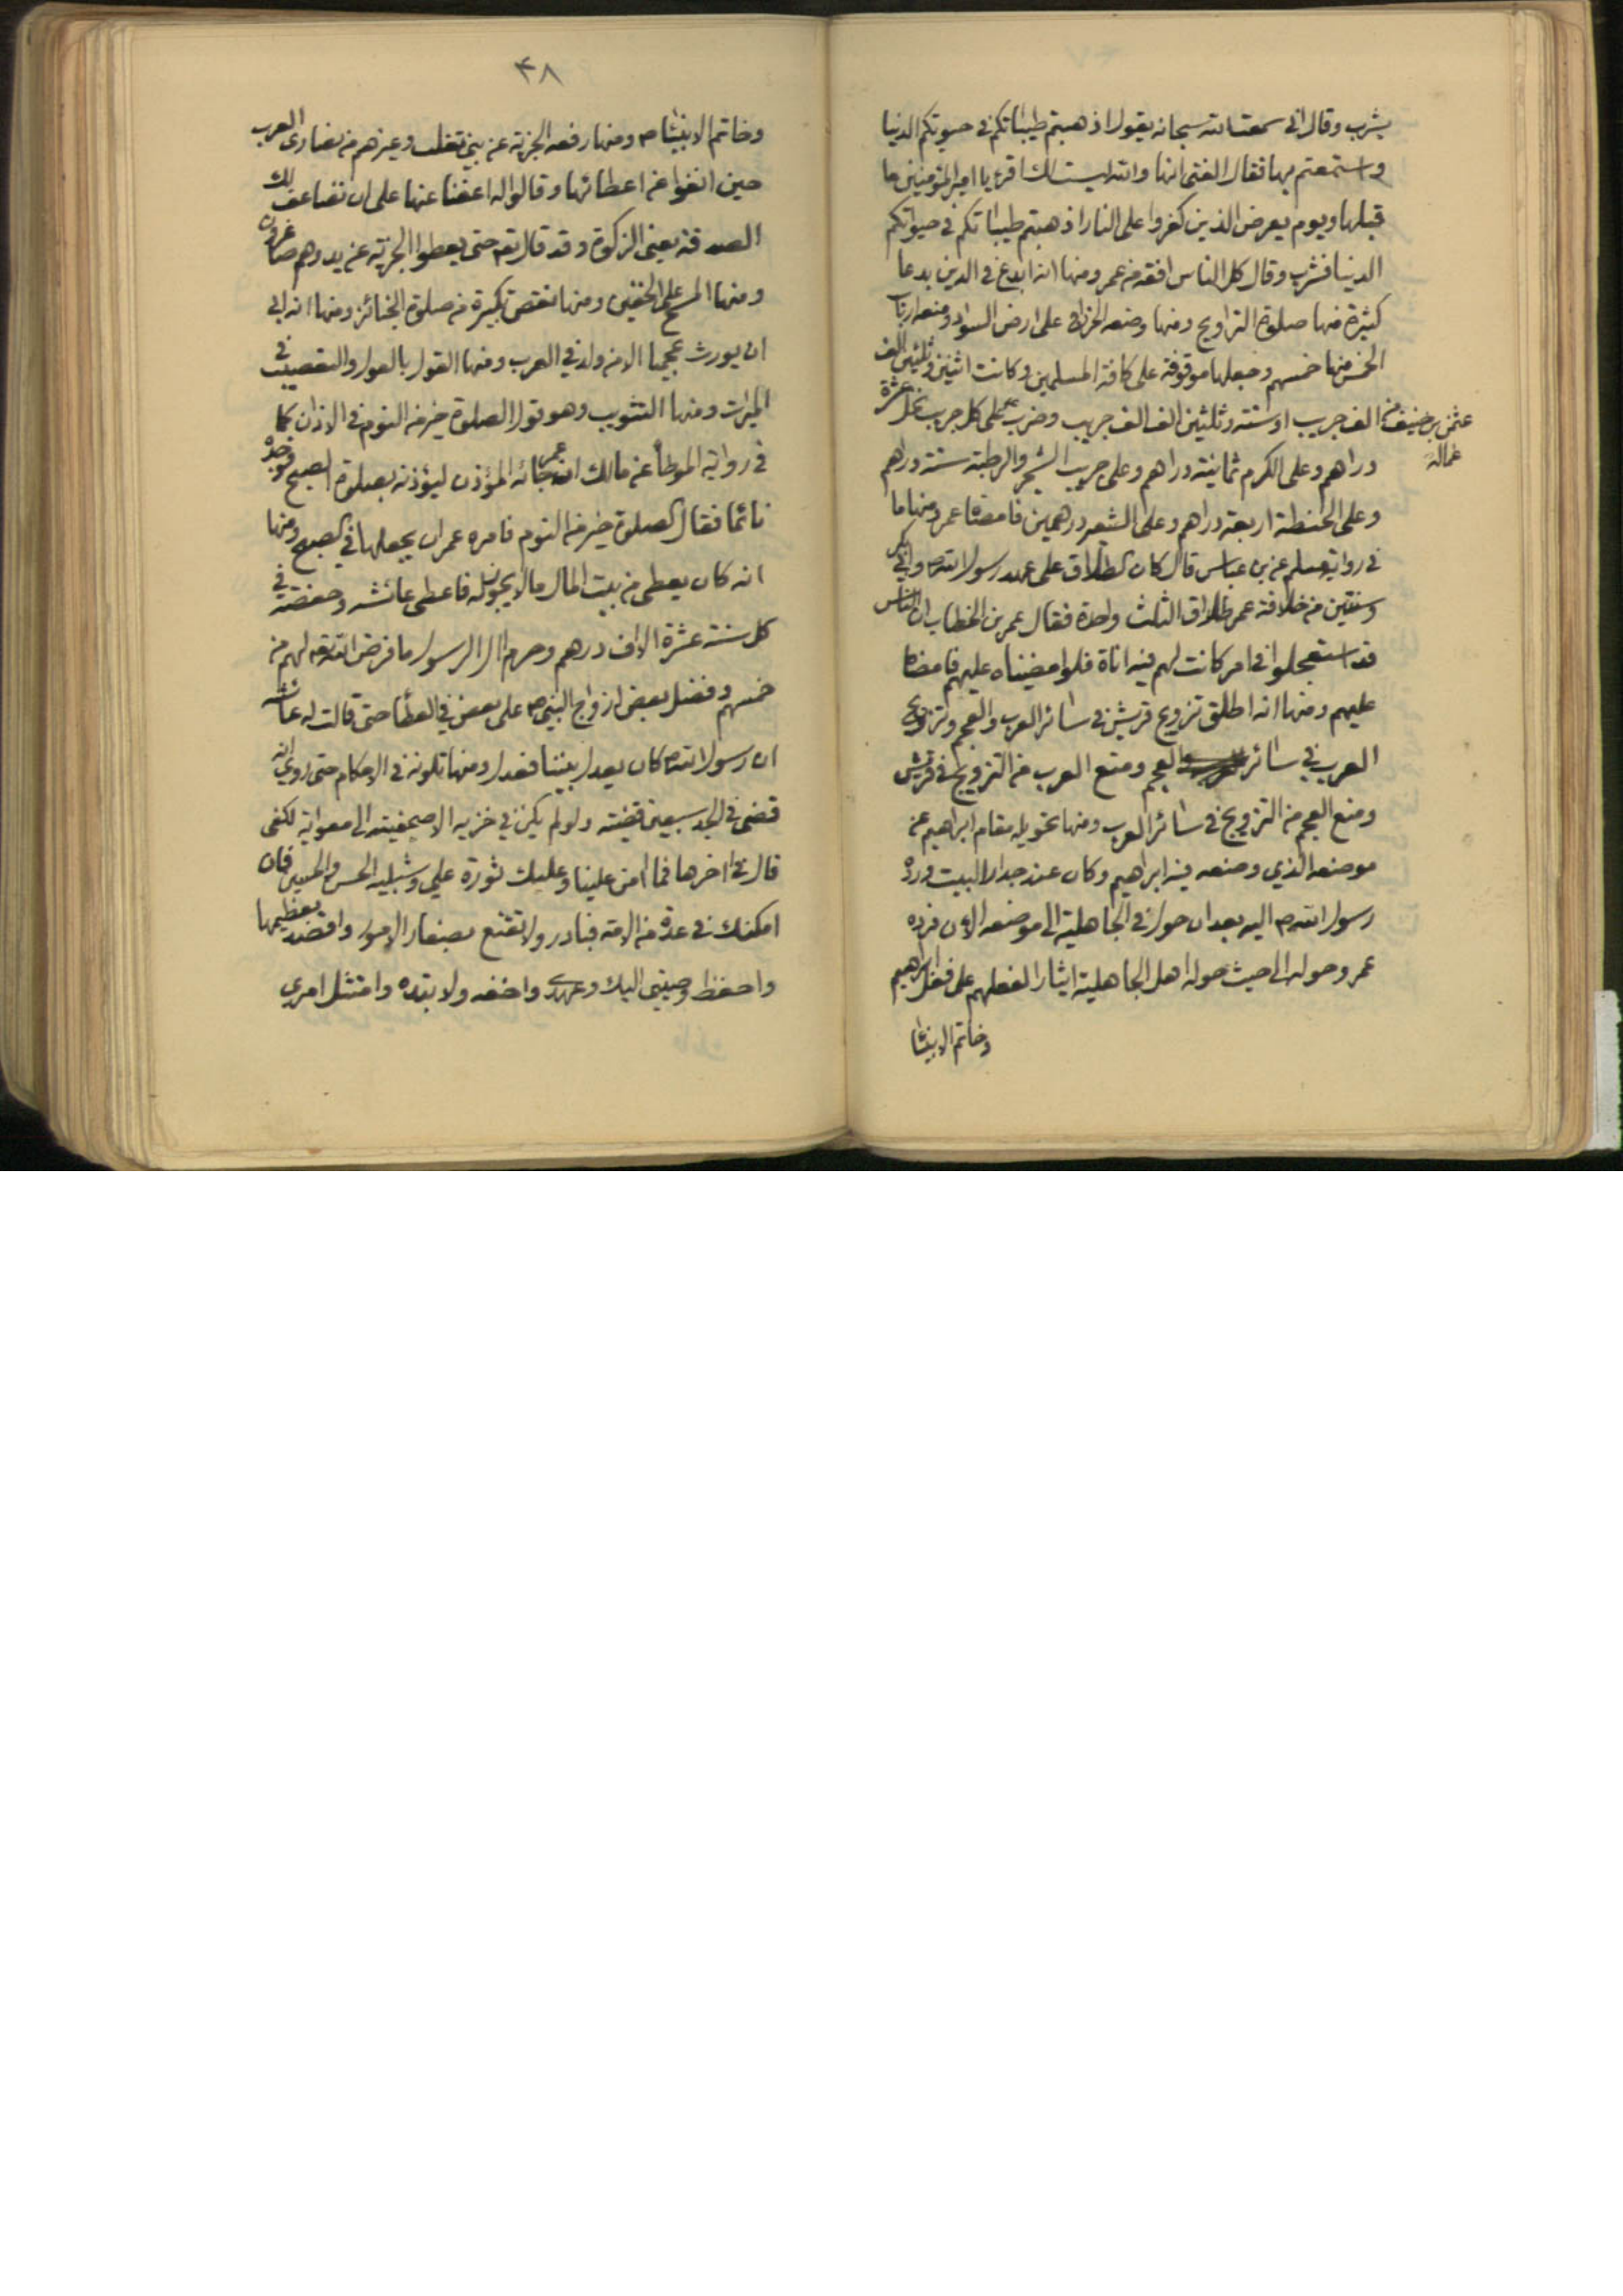 يشرب وقال اني سمعت الله سبحانه يقول اذهبتم طيباتكم في حيوتكم الدنيا
واستمتعتم بها فقال الفتى انها والله ليست لك اقرء يا امير المؤمنين ما
قبلها ويوم يعرض الذين كفروا على النار اذهبتم طيباتكم في حيوتكم
الدنيا فشرب وقال كل الناس افقه من عمر ومنها انه ابدع في الدين بدعا
كثيرة منها صلوة التراويح ومنها وضعه الخراج على ارض السواد ومنعه ارباب
الخمس منها خمسهم وجعلها موقوفة على كافة المسلمين وكانت اثنين وثلثين الف
الف جريب او ستة وثلثين الف الف جريب وضرب على كل جريب نخل عشرة
عثمن بن حنيف من
عماله
دراهم وعلى الكرم ثمانية دراهم وعلى جريب الشجر والرطبة ستة دراهم
وعلى الحنطة اربعة دراهم وعلى الشعير درهمين فامضاها عمر ومنها ما
في رواية مسلم عن بن عباس قال كان الطلاق على عهد رسول الله ص وابي بكر
وسنتين من خلافة عمر طلاق الثلث واحدة فقال عمر بن الخطاب ان الناس
قد استعجلوا في امر كانت لهم فيه اناة فلو امضيناه عليهم فامضاه
عليهم ومنها انه اطلق تزويج قريش في سائر العرب والعجم وتزويج
العرب في سائر العجم ومنع العرب من التزويج في قريش
ومنع العجم من التزويج في سائر العرب ومنها تحويله مقام ابراهيم عن
موضعه الذي وضعه فيه ابراهيم وكان عند جدار البيت ورده
رسول الله ص اليه بعد ان حول في الجاهلية الى موضعه الان فرده
عمر وحوله الى حيث حوله اهل الجاهلية ايثارا لفعلهم على فعل ابراهيم
وخاتم الانبياء
٤٨
وخاتم الانبياء ص ومنها رفعه الجزية عن بني تغلب وغيرهم من نصارى العرب
حين انفوا من اعطائها وقالوا له اعفنا عنها على ان نضاعف لك
الصدقة يعني الزكوة وقد قال تع حتى يعطوا الجزية عن يد وهم صاغرون
ومنها المسح على الخفين ومنها نقص تكبيرة من صلوة الجنائز ومنها انه ابى
ان يورث عجميا الا من ولد في العرب ومنها القول بالعول والتعصيب في
الميراث ومنها التثويب وهو قول الصلوة خير من النوم في الاذان كما
في رواية الموطأ عن مالك ان عمر جائه المؤذن ليؤذنه بصلوة الصبح فوجده
نائما فقال الصلوة خير من النوم فامره عمر ان يجعلها في الصبح ومنها
انه كان يعطي من بيت المال ما لا يجوز له فاعطى عائشه وحفصة في
كل سنة عشرة الاف درهم وحرم ال الرسول ما فرض الله تع لهم من
خمسهم وفضل بعض ازواج النبي ص على بعض في العطأ حتى قالت له عائشه
ان رسول الله ص كان يعدل بيننا فعدل ومنها تلونه في الاحكام حتى روي انه
قضى في الجد سبعين قضية ولو لم يكن في خزيه الا صحيفته الى معوية لكفى
قال في اخرها فما امن علينا وعليك ثورة علي وشبليه الحسن والحسين فان
امكنك في عدة من الامة فبادر ولا تقنع بصغار الامور واقصد بعظيمها
واحفظ وصيتي اليك وعهدي واخفه ولا تبده وامتثل امري